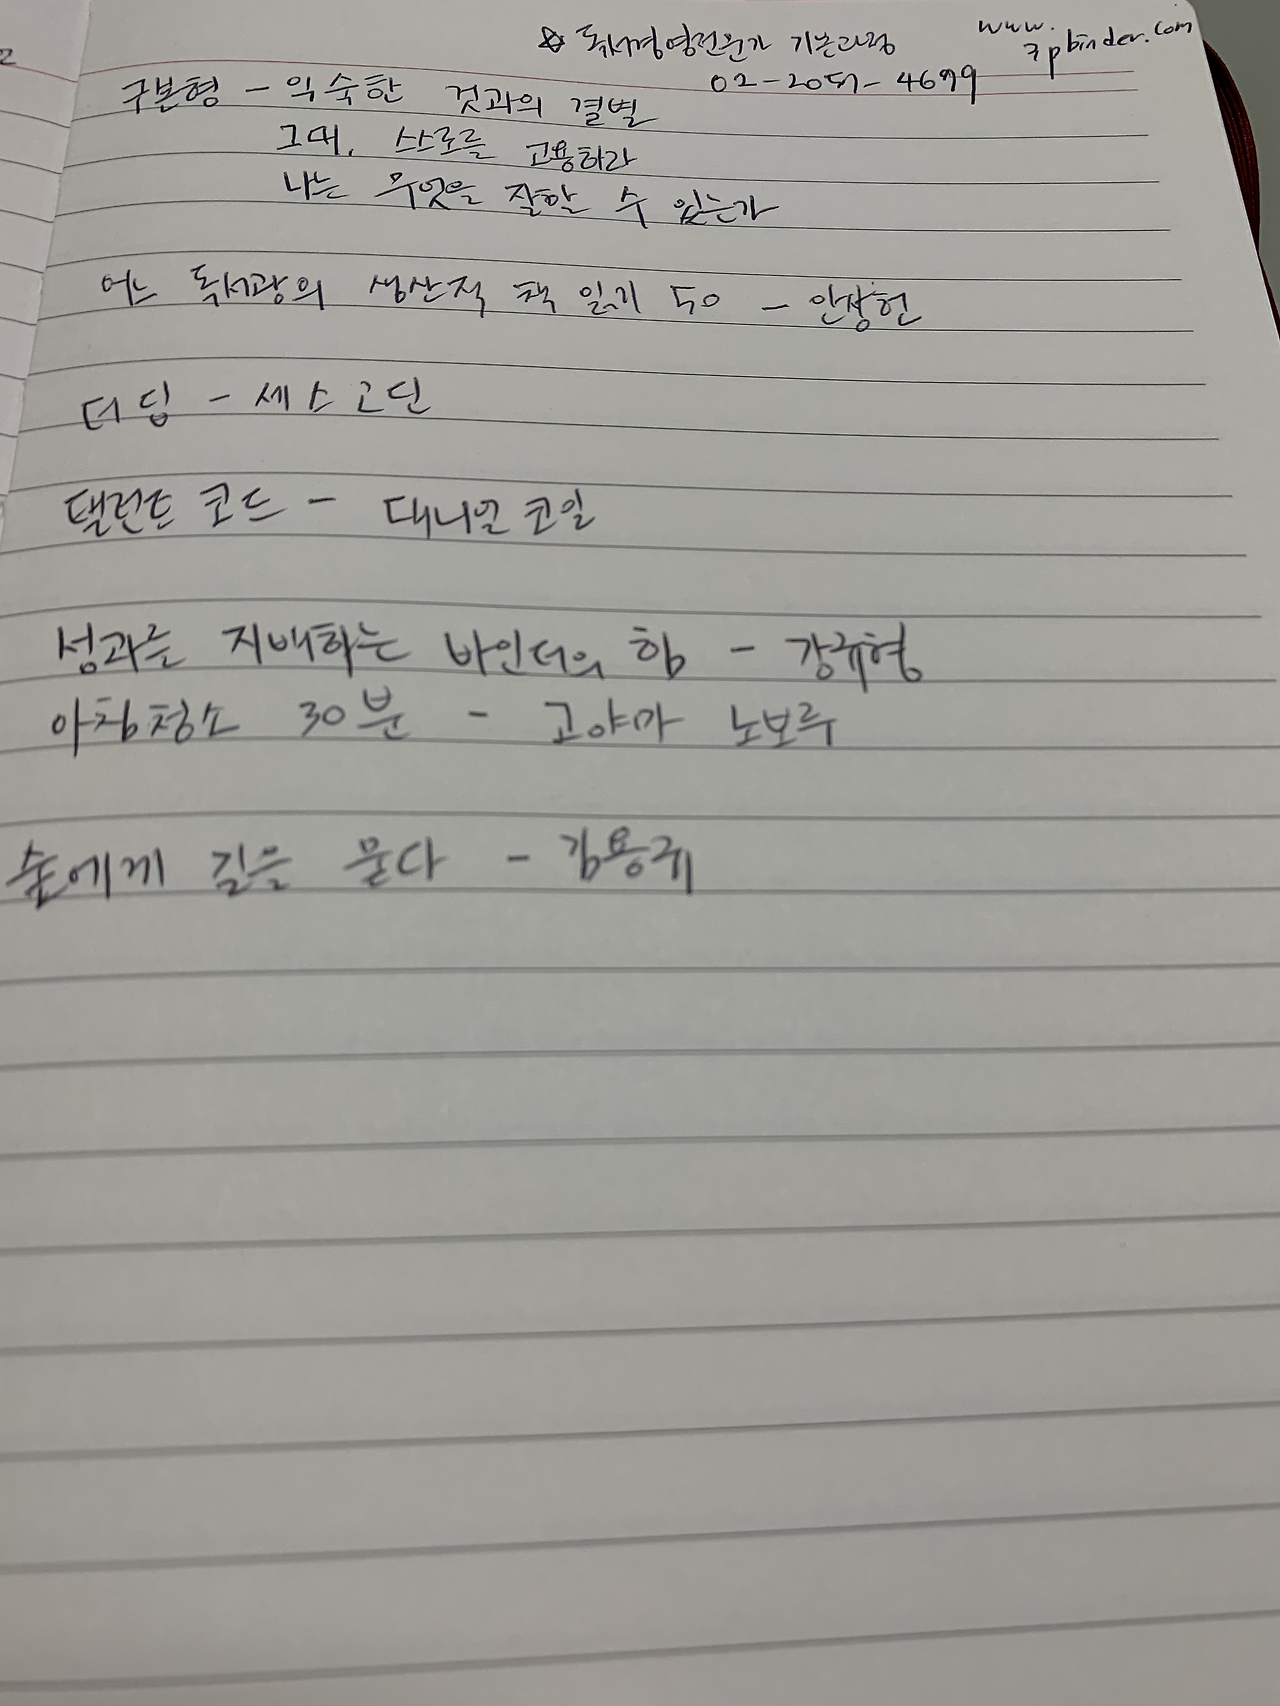 ☆ 독서경영전문가 기본과정 www.
3pbinder.com
02-2057-4679
구본형 - 익숙한 것과의 결별
그대, 스스로를 고용하라
나는 무엇을 잘할 수 있는가
어느 독서광의 생산적 책 읽기 50 - 안상헌
더딥 - 세스 고딘
탤런트 코드 - 대니얼 코일
성과를 지배하는 바인더의 힘 - 강규형
아침청소 30분 - 고야마 노보루
숲에게 길을 묻다 - 김용규
2